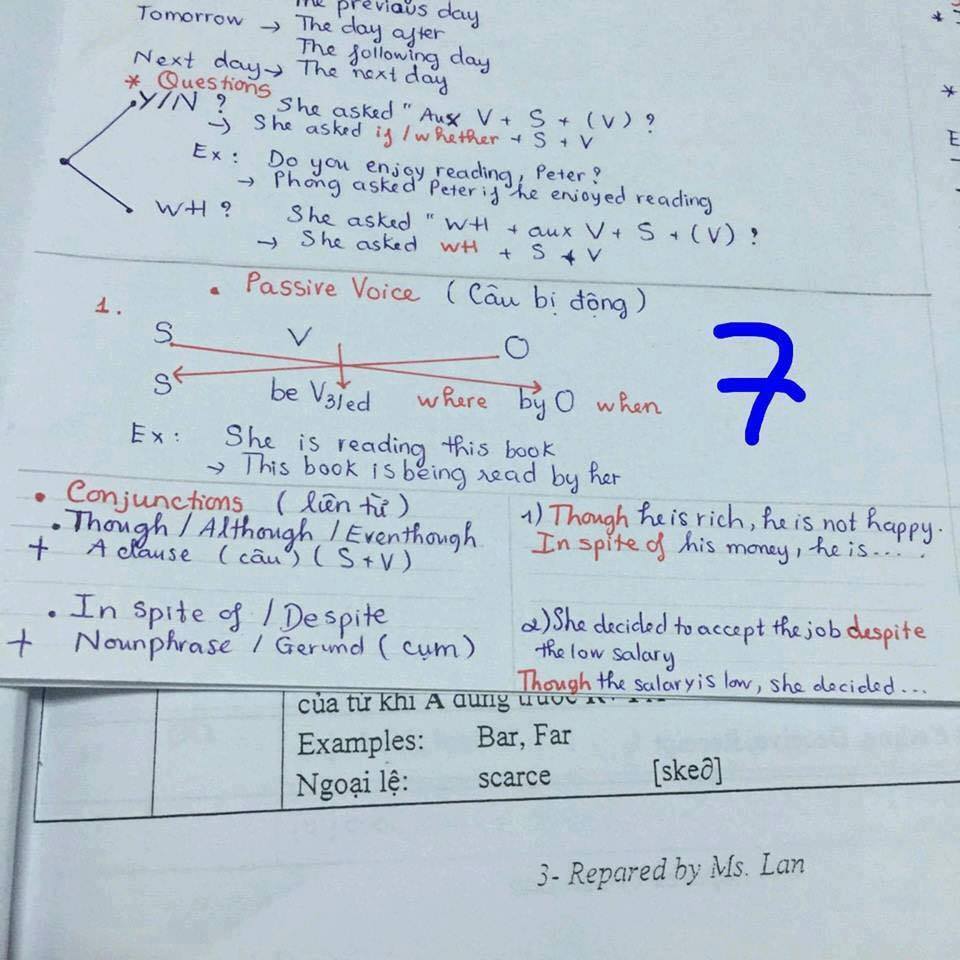 The previous day
Tomorrow → The day after
The following day
Next day → The next day
* Questions
Y/N ? She asked " Aux V + S + (V) ?
→ She asked if / whether + S + V
Ex : Do you enjoy reading, Peter ?
→ Phong asked Peter if he enjoyed reading
WH ? She asked " WH + aux V + S + (V) ?
→ She asked WH + S + V
• Passive Voice ( Câu bị động )
1.
S V O
S be V3/ed where by O when
7
Ex : She is reading this book
→ This book is being read by her
• Conjunctions ( liên từ )
• Though / Although / Eventhough
+ A clause ( câu ) ( S + V )
• In spite of / Despite
+ Nounphrase / Gerund ( cụm )
1) Though he is rich, he is not happy.
In spite of his money, he is.....
2) She decided to accept the job despite
the low salary
Though the salary is low, she decided...
của từ khi A đứng trước
Examples: Bar, Far
Ngoại lệ: scarce [skeə]
3- Repared by Ms. Lan
*
*
E